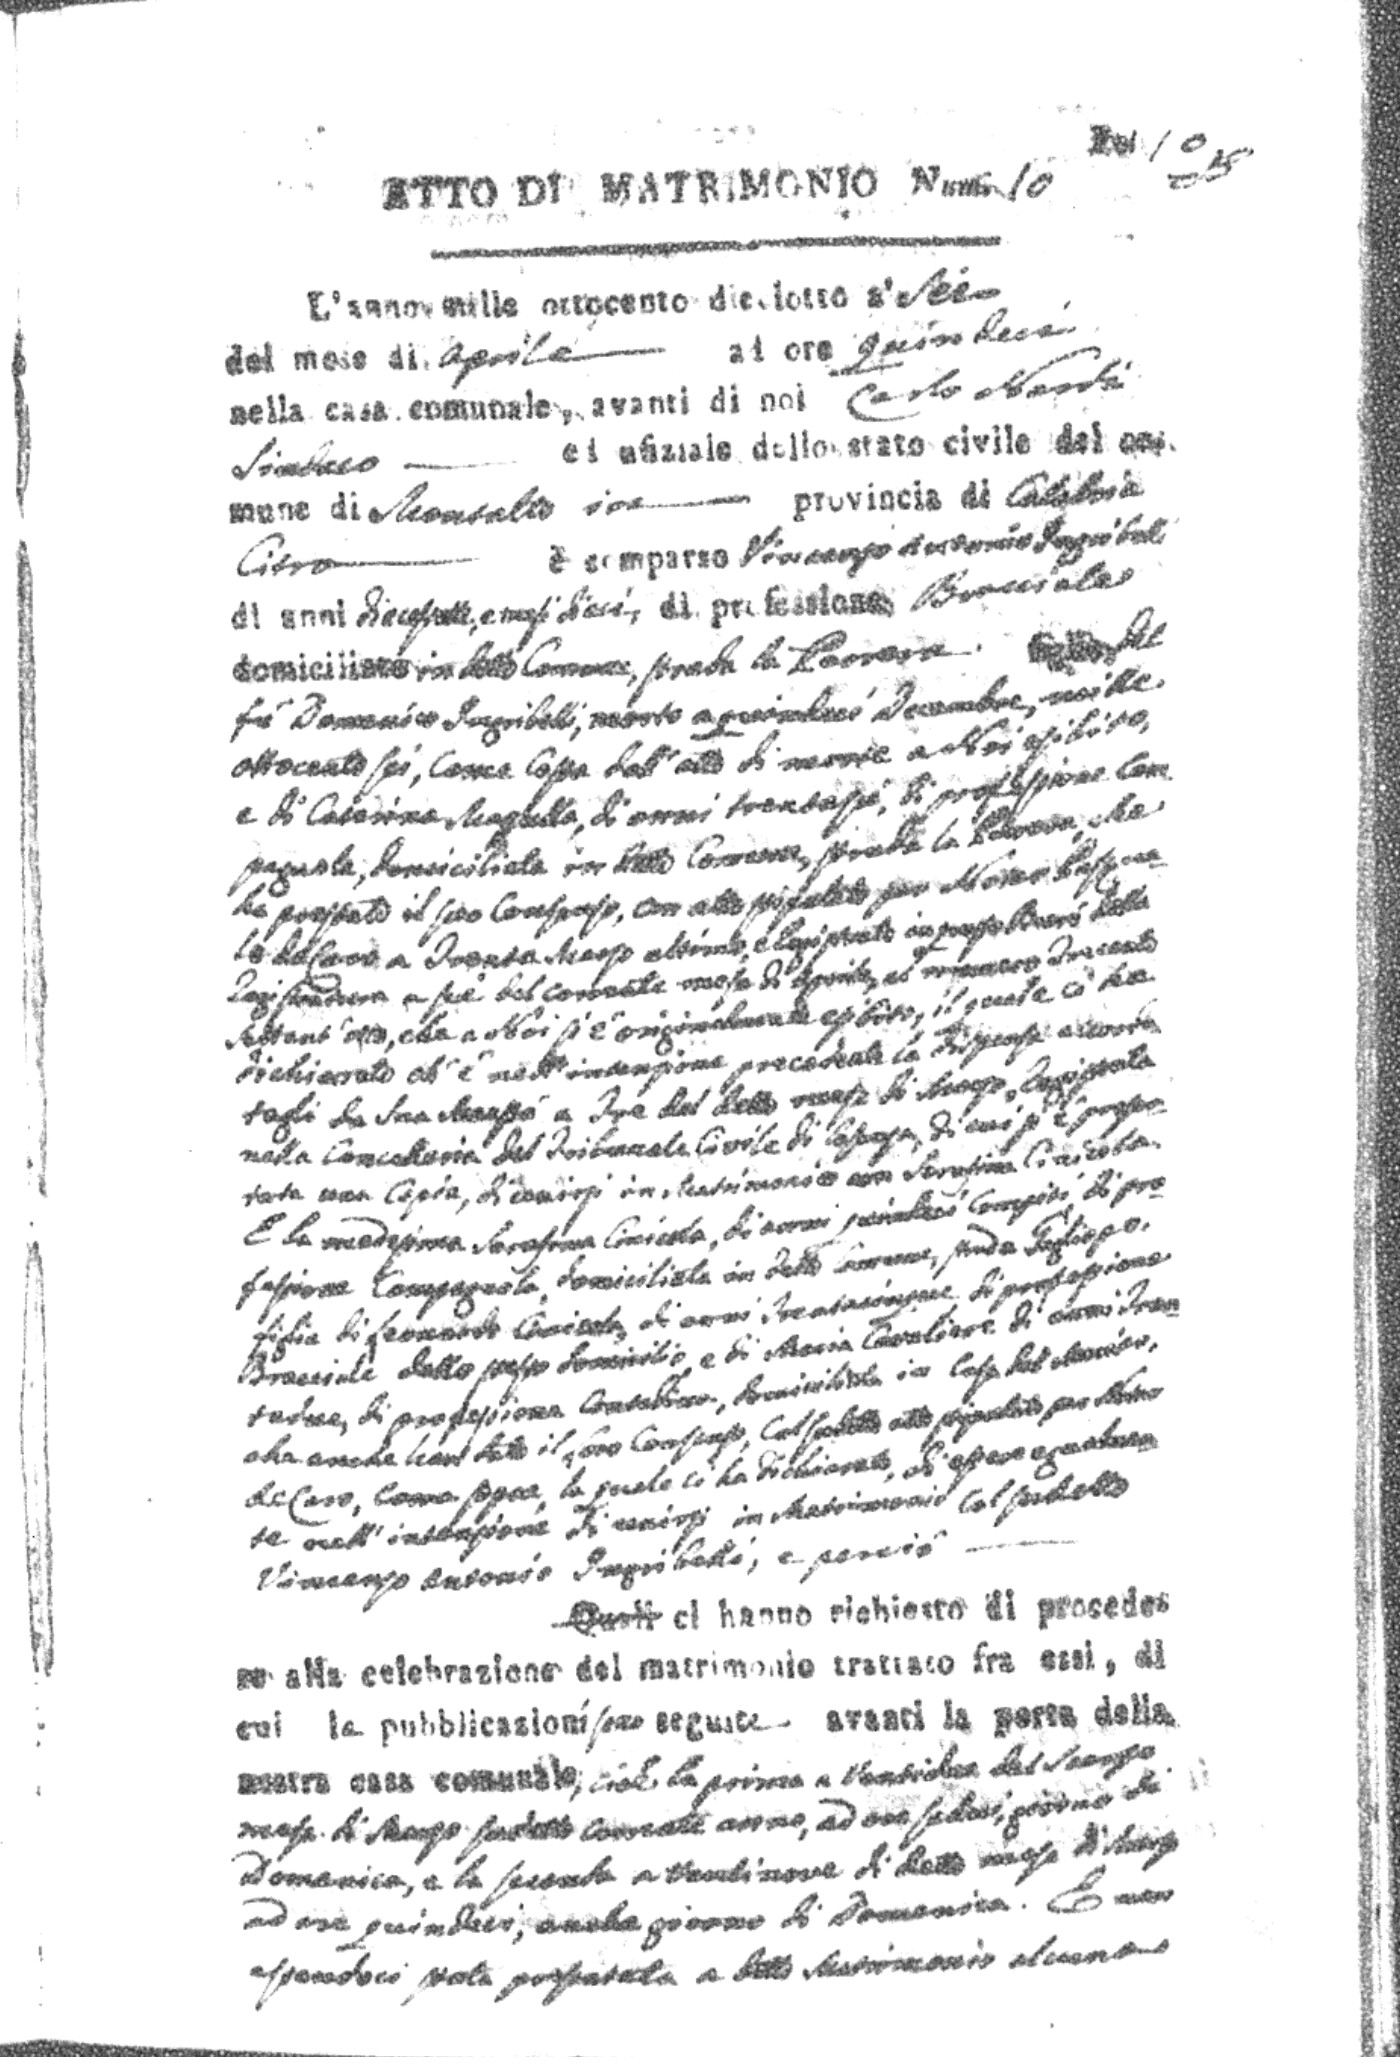 Fol 10
ATTO DI MATRIMONIO Num. 10
L'anno mille ottocento dieciotto a' Sei
del mese di Aprile ad ore quindeci
nella casa comunale, avanti di noi Carlo Nardi
Sindaco ed ufiziale dello stato civile del co-
mune di Montalto in provincia di Calabria
Citra è comparso Vincenzo Antonio Ingribelli
di anni diecisette, e mesi dieci, di professione Bracciale
domiciliato in detto Comune, strada la Porrera. del
fù Domenico Ingribelli, morto a quindeci Decembre, mille
ottocento sei, come costa dall'atto di morte a Noi esibito,
e di Caterina, di anni trentasei, di professione Cam
pagnola, domiciliata in detto Comune, strada la Porrera, che
ha prestato il suo Consenso, con atto stipulato per Notar Pasqua-
le de Caro a Trenta Marzo ultimo, e Registrato in questo Burò della
Registratura a sei del corrente mese di Aprile, al numero Trecento
settant'otto, che a Noi si è originalmente esibito, il quale ci ha
dichiarato ch'è nell'intenzione precedente la dispensa accorda
tagli da Sua Maestà a Tre del detto mese di Marzo, Registrata
nella Cancelleria del Tribunale Civile di Cosenza, di cui si è presen-
tata una Copia, di unirsi in Matrimonio con Serafina
E la medesima Serafina, di anni quindeci compiti, di pro-
fessione Campagnola, domiciliata in detto Comune, strada
figlia di, di anni Trentacinque di professione
Bracciale dello stesso domicilio, e di Maria Cavaliere di anni Tren
tadue, di professione, domiciliata in Casa del Marito,
che anche han dato il loro Consenso, col sudetto atto stipulato per Notar
de Caro, come sopra, la quale ci ha dichiarato, di essere egualmen
te nell'intenzione di unirsi in Matrimonio col sudetto
Vincenzo Antonio Ingribelli, e perciò
Quali ci hanno richiesto di procede-
re alla celebrazione del matrimonio trattato fra essi, di
cui le pubblicazioni sono seguite avanti la porta della
nostra casa comunale, cioè la prima a ventidue del
mese di Marzo sudetto corrente anno, ad ore sedeci, giorno di
Domenica, e la seconda a ventinove di detto mese di Marzo
ad ore quindeci, anche giorno di Domenica. E non
essendoci stata presentata a detto Matrimonio alcuna